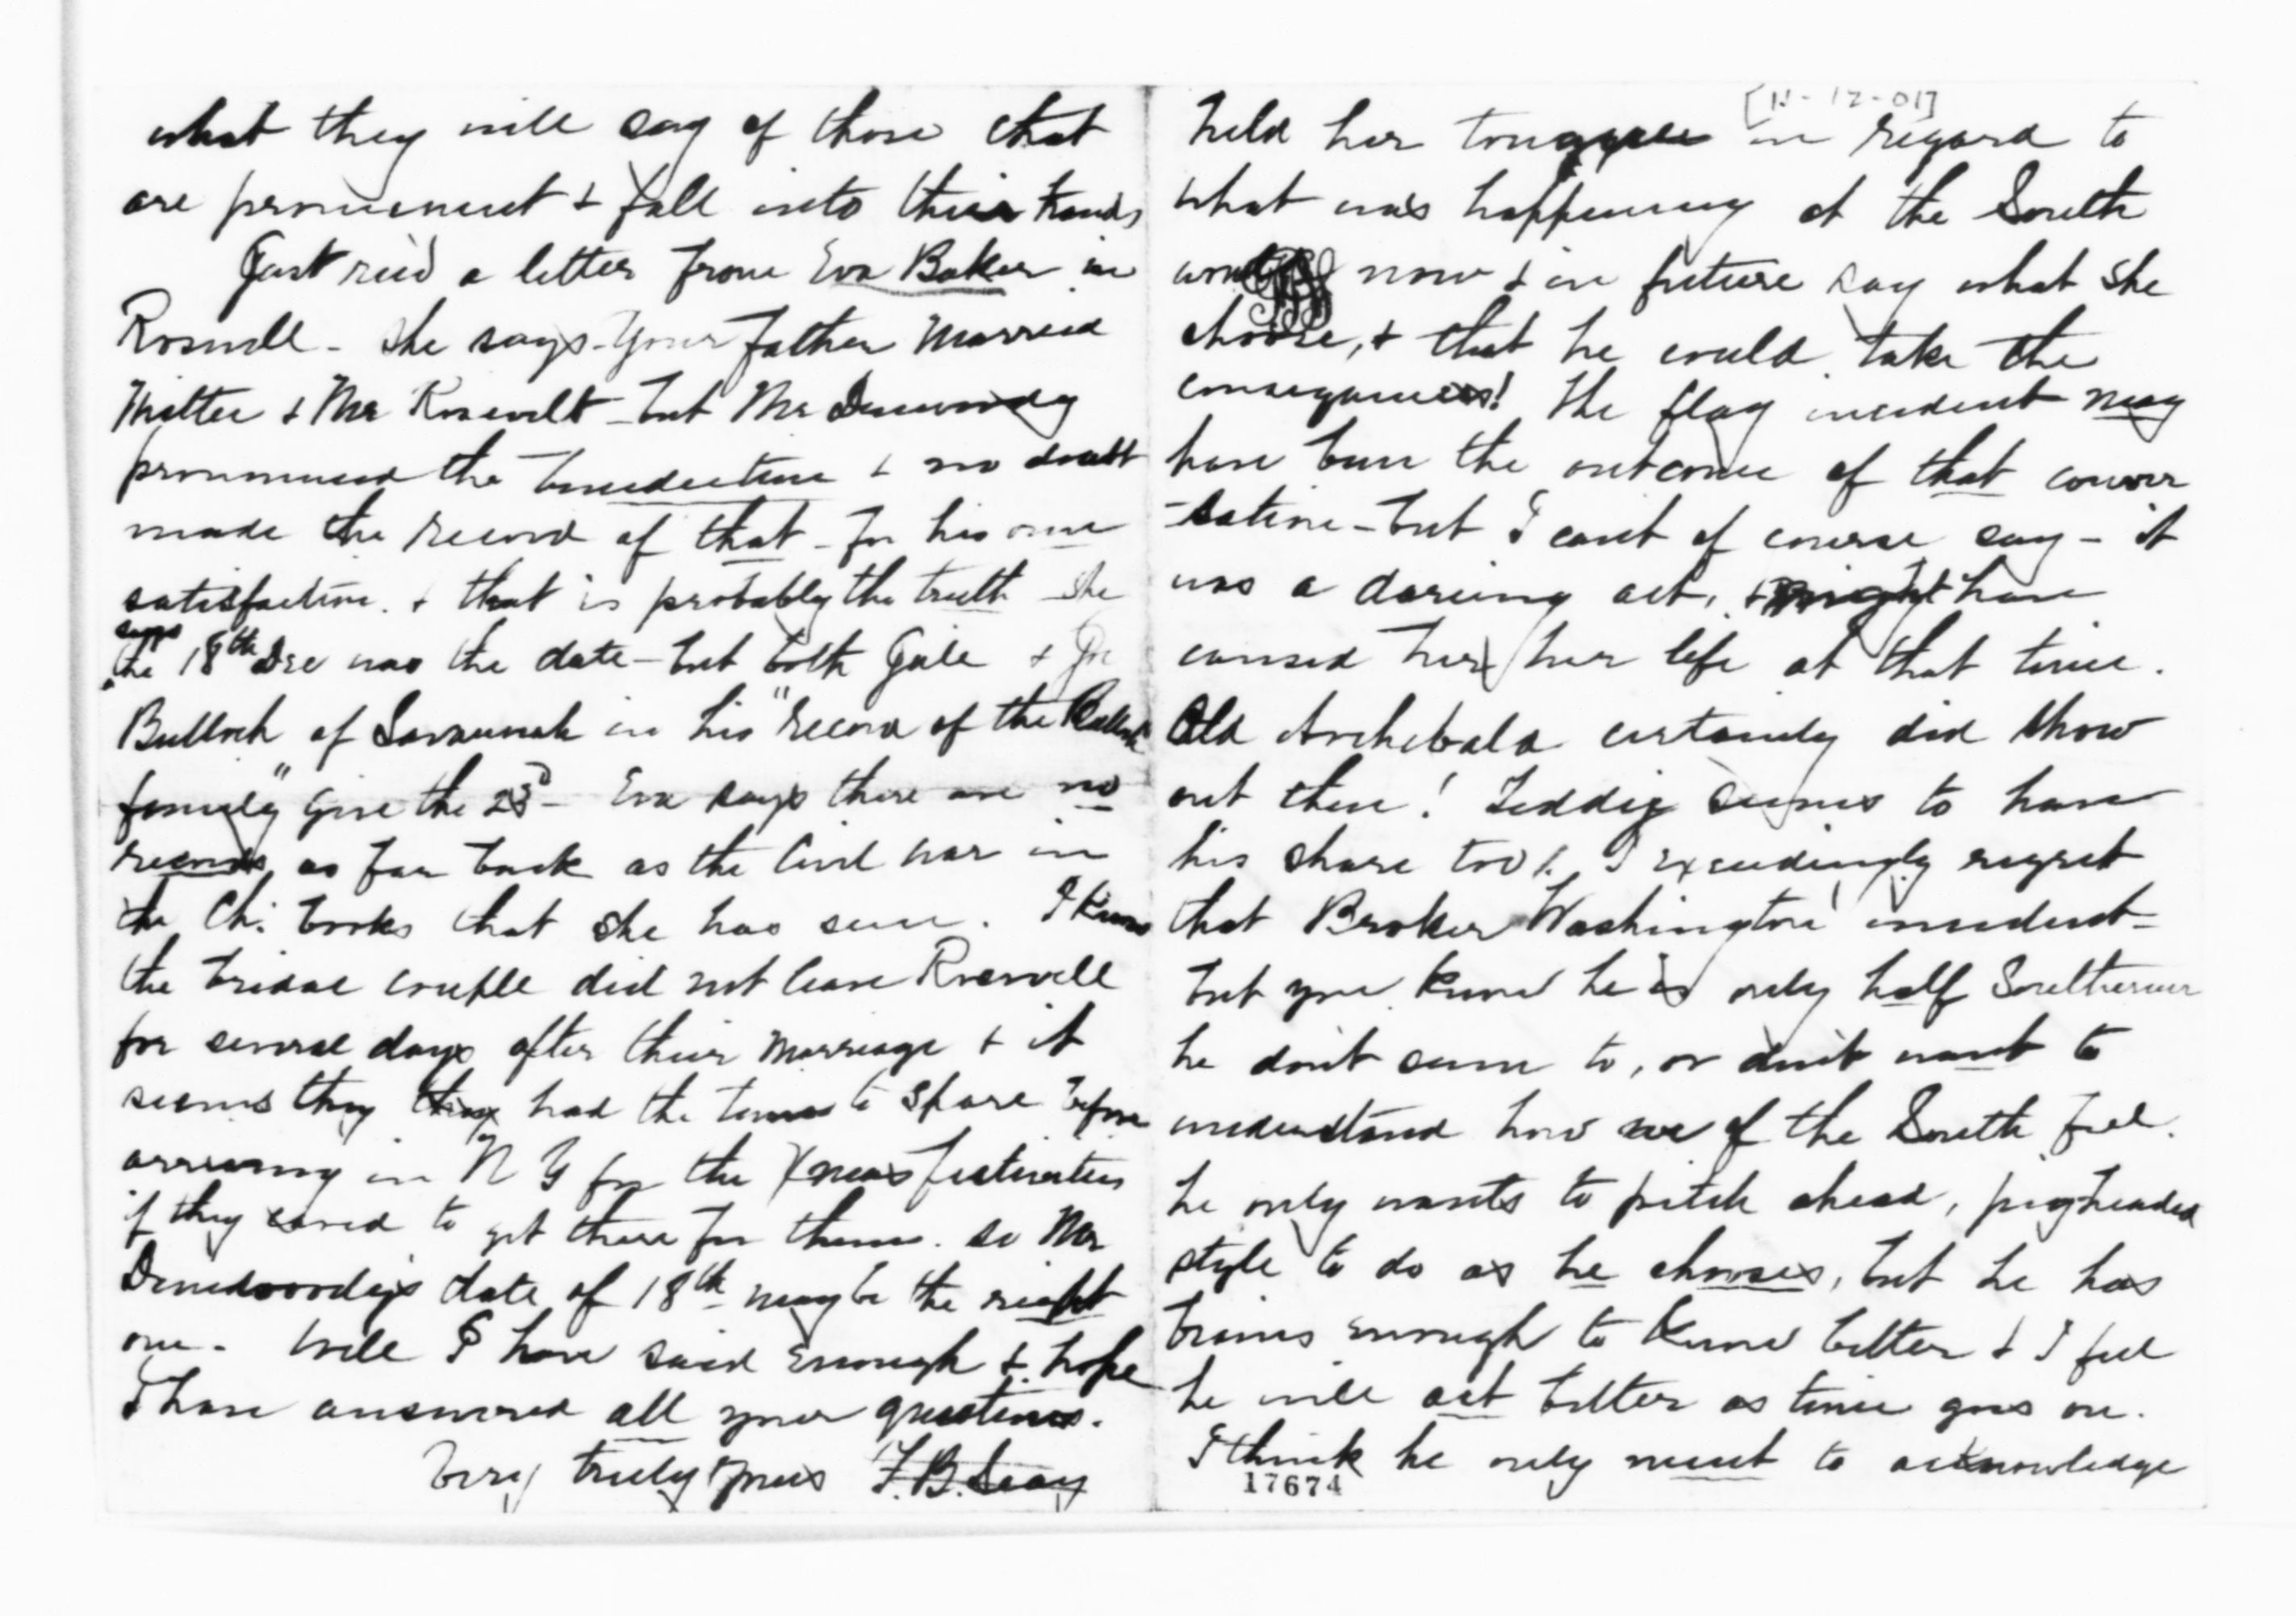 what they will say of those that
are prominent & fall into their hands
Just rec'd a letter from Eva Baker in
Roswell - she says - your father married
Mittie & Mr Roosevelt - but Mr Dunwody
pronounced the benediction & no doubt
made the record of that - for his own
satisfaction. & that is probably the truth - she
says
the 18th Dec was the date - but both Gale & Jos
Bulloch of Savannah in his "record of the Bulloch
family" give the 23d - Eva says there are no
records as far back as the Civil war in
the Ch: books that she has seen. I know
the bridal couple did not leave Roswell
for several days after their marriage & it
seems they they had the time to spare before
arriving in N Y for the Xmas festivities
if they cared to get there for them. so Mr
Dunwoody's date of 18th may be the right
one. Well I have said enough & hope
I have answered all your questions.
Very truly yours F. B. Seay
[11-12-01]
held her tongue in regard to
what was happening at the South
would now & in future say what she
choose, & that he could take the
consequences! The flag incident may
have been the outcome of that conver
-sation - but I can't of course say - it
was a daring act, & might have
caused her her life at that time.
Old Archibald certainly did show
out then! Teddie seems to have
his share too!. I exceedingly regret
that Broker Washington incident -
but you know he is only half Southerner
he don't seem to, or don't want to
understand how we of the South feel.
he only wants to pitch ahead, pigheaded
style to do as he chooses, but he has
brains enough to know better & I feel
he will act better as time goes on.
I think he only meant to acknowledge
17674